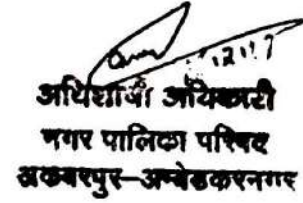 अधिशाषी अधिकारी
नगर पालिका परिषद
अकबरपुर–अम्बेडकरनगर